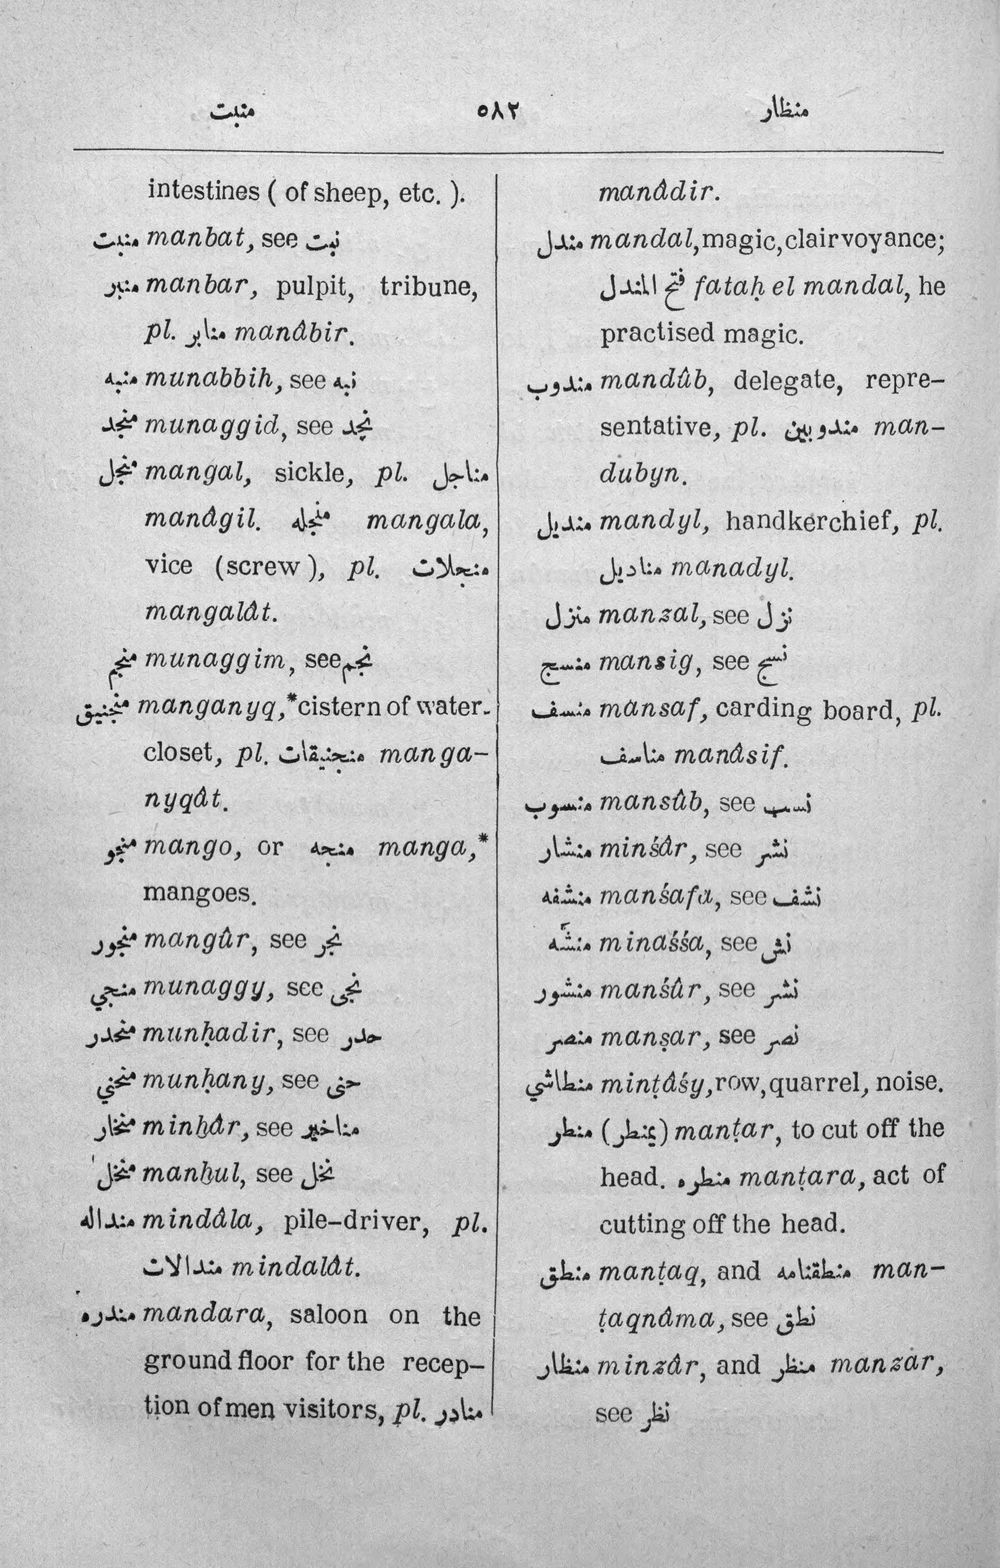 منبت ٥٨٢ منظار
intestines ( of sheep, etc. ).
منبت manbat, see نبت
منبر manbar, pulpit, tribune,
pl. منابر manâbir.
منبه munabbih, see نبه
منجد munaggid, see نجد
منجل mangal, sickle, pl. مناجل
manâgil. منجله mangala,
vice (screw), pl. منجلات
mangalât.
منجم munaggim, see نجم
منجنيق manganyq,*cistern of water-
closet, pl. منجنيقات manga-
nyqât.
منجو mango, or منجه manga,*
mangoes.
منجور mangûr, see نجر
منجي munaggy, see نجى
منحدر munḥadir, see حدر
منحني munḥany, see حنى
منخار minḫâr, see مناخير
منخل manḫul, see نخل
منداله mindâla, pile-driver, pl.
مندالات mindalât.
مندره mandara, saloon on the
ground floor for the recep-
tion of men visitors, pl. منادر
manâdir.
مندل mandal, magic, clairvoyance;
فتح المندل fataḥ el mandal, he
practised magic.
مندوب mandûb, delegate, repre-
sentative, pl. مندوبين man-
dubyn.
منديل mandyl, handkerchief, pl.
مناديل manadyl.
منزل manzal, see نزل
منسج mansig, see نسج
منسف mansaf, carding board, pl.
مناسف manâsif.
منسوب mansûb, see نسب
منشار minśâr, see نشر
منشفه manśafa, see نشف
منشّه minaśśa, see نش
منشور manśûr, see نشر
منصر manṣar, see نصر
منطاشي minṭâśy, row, quarrel, noise.
منطر (يمنطر) manṭar, to cut off the
head. منطره manṭara, act of
cutting off the head.
منطق manṭaq, and منطقنامه man-
ṭaqnâma, see نطق
منظار minzâr, and منظر manzar,
see نظر